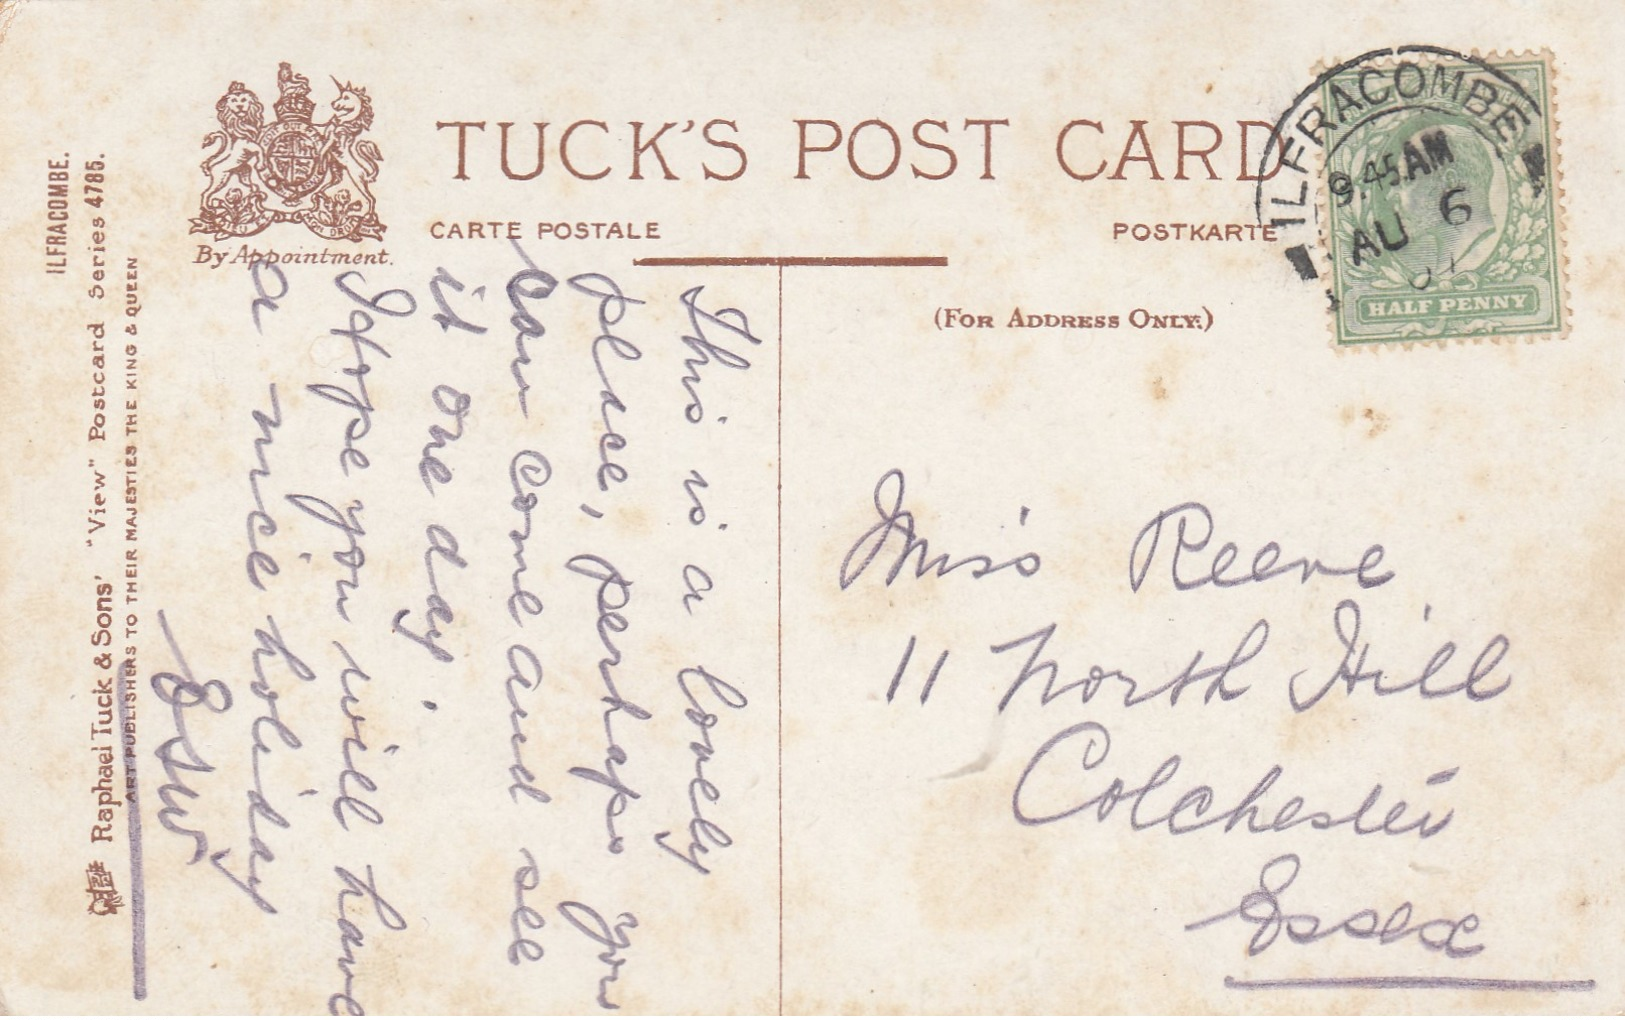 TUCK'S POST CARD
CARTE POSTALE
POSTKARTE
By Appointment.
(FOR ADDRESS ONLY.)
ILFRACOMBE
9.45 AM
AU 6
HALF PENNY
This is a lovely
place, perhaps you
can come and see
it one day.
I hope you will have
a nice holiday
Miss Reeve
11 North Hill
Colchester
Essex
ILFRACOMBE.
Raphael Tuck & Sons' "View" Postcard Series 4785.
ART PUBLISHERS TO THEIR MAJESTIES THE KING & QUEEN